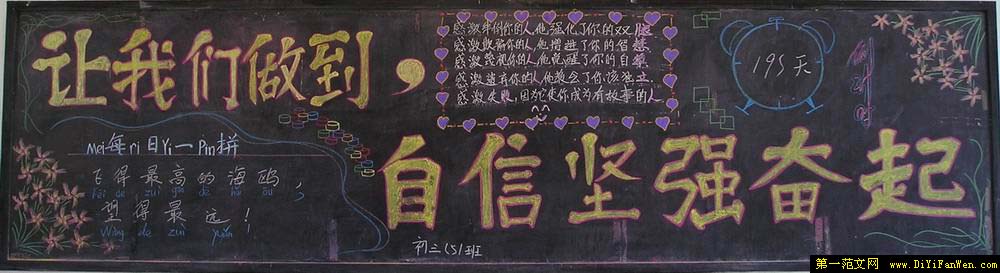 让我们做到，
感激绊倒你的人，他强化了你的双腿
感激欺骗你的人，他增进了你的智慧
感激藐视你的人，他觉醒了你的自尊
感激遗弃你的人，他教会了你该独立
感激失败，因为它使你成为有故事的人
195天
Mei每ri日Yi一Pin拼
飞得最高的海鸥，
Fēi de zuì gāo de hǎi ōu
望得最远！
Wàng de zuì yuǎn
自信坚强奋起
初三(5)班
第一范文网 www.DiYiFanWen.com